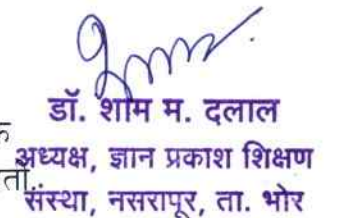 डॉ. शाम म. दलाल
अध्यक्ष, ज्ञान प्रकाश शिक्षण
संस्था, नसरापूर, ता. भोर